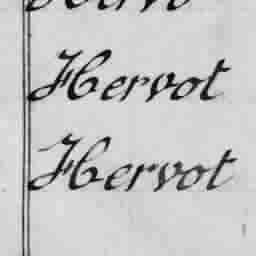 Hervot
Hervot